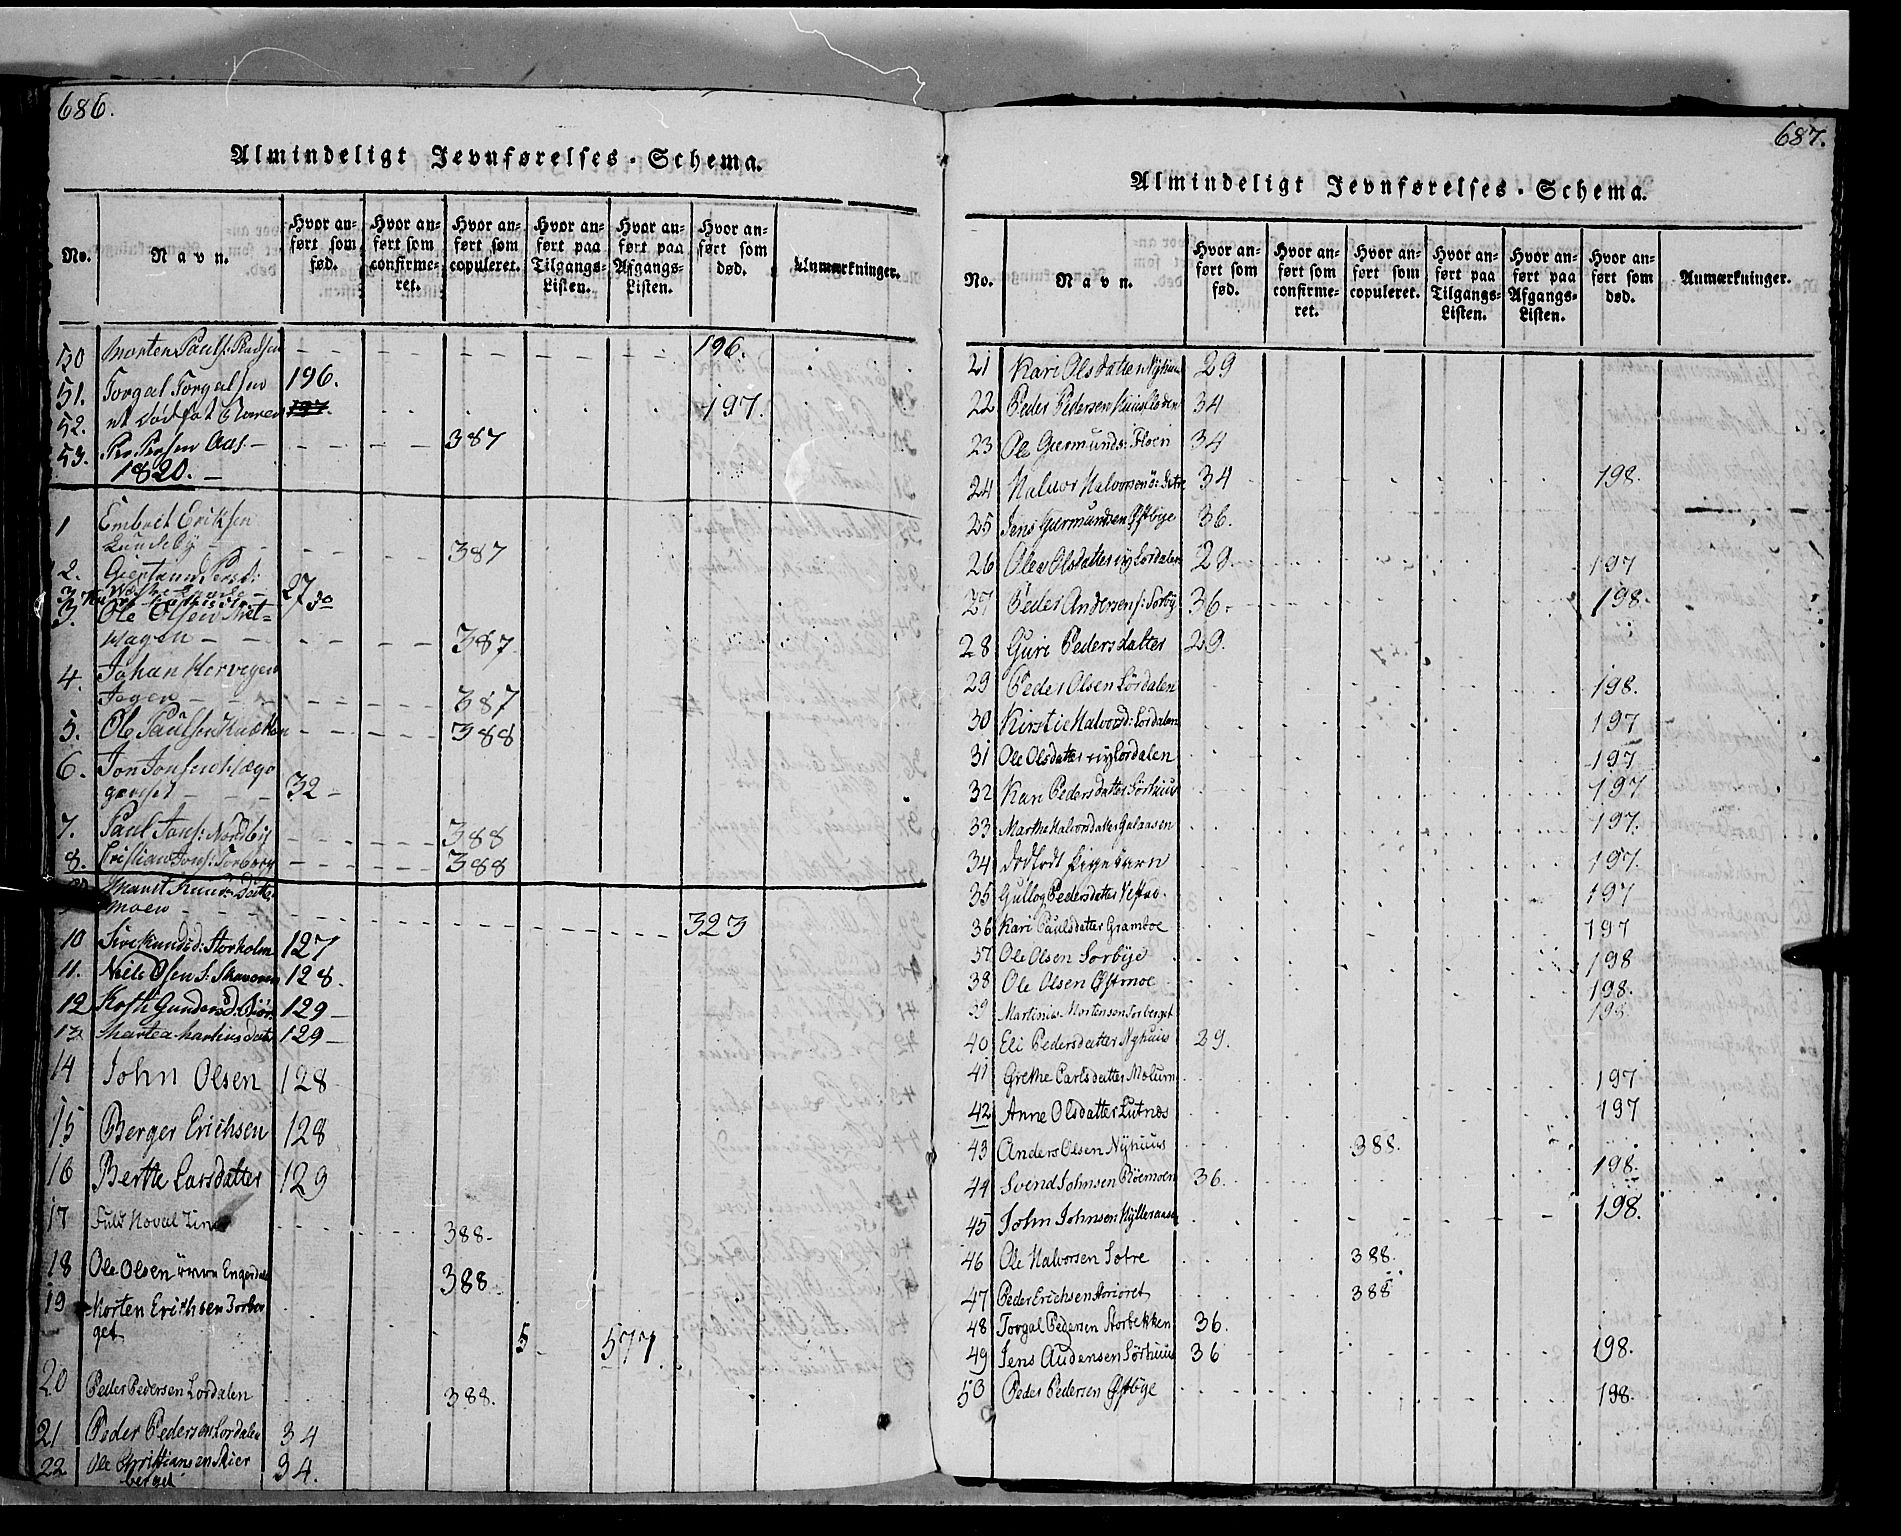 686.
Almindeligt Jevnførelses-Schema.
No. Navn. Hvor anført som fød. Hvor anført som confirmeret. Hvor anført som copuleret. Hvor anført paa Tilgangs-Listen. Hvor anført paa Afgangs-Listen. Hvor anført som død. Anmærkninger.
50 Morten Pauls: 196.
51. Torgal Torgalsen 196.
52. et dødføt 197. 197.
53. Pr Persen Aas 387
1820.
1 Embret Eriksen
Lundeby 387
2. Giertrund Persd: 27
3. Ole Olsen
387
4. Johan
387
5. Ole Paulsen 388
6. Jon Jonsen
32
7. Paul Jons: Nordby 388
8. Cristian Jons: 388
Marit Knudsdatter
Moen 323
10 Siri Knudsd: Storholm 127
11. Niels Olsen 128.
12 Gundersd: 129
13 Martea Martinsdatter 129
14 John Olsen 128
15 Berger Erichsen 128
16 Berthe Larsdatter 129
17 388.
18 Ole Olsen Engerdal 388
19 Morten Erichsen Sorber
get 5 577.
20 Peder Pedersen Lordalen 388.
21 Peder Pedersen Lordalen 34
22 Ole Christiansen Skier 34.
berget
687.
Almindeligt Jevnførelses-Schema.
No. Navn. Hvor anført som fød. Hvor anført som confirmeret. Hvor anført som copuleret. Hvor anført paa Tilgangs-Listen. Hvor anført paa Afgangs-Listen. Hvor anført som død. Anmærkninger.
21 Kari Olsdatter Nyhuus 29
22 Peder Pedersen 34
23 Ole Giermunds: Floen 34
24 Halvor Halvorsen 34 198.
25 Jens Giermundsen Østbye 36.
26 Olea Olsdatter Lordalen 29 197
27 Peder Andersen S: Sorby 36. 198.
28 Guri Pedersdatter 29.
29 Peder Olsen Lørdalen 198.
30 Kirstie Halvorsd: Lordalen 197
31 Ole Olsdatter Lordalen 197
32 Kari Pedersdatter Sørhuus 197
33 Marthe Halvorsdatter Galaasen 197.
34 dødfødt Pigebarn 197.
35 Gullog Pedersdatter 197
36 Kari Paulsdatter Gramboe 197
37 Ole Olsen Sorbye 198
38 Ole Olsen Østmoe 198.
39 Martinus Mortensen Sorberget 198
40 Eli Pedersdatter Nyhuus 29.
41 Grethe Carlsdatter Molum 197
42 Anne Olsdatter Lutnes 197
43 Anders Olsen Nyhuus 388. 198.
44 Svend Johnsen 36.
45 John Johnsen Hylleraasen 198.
46 Ole Halvorsen Sætre 388.
47 Peder Erichsen 388
48 Torgal Pedersen Storbekken 36.
49 Jens Audensen Sørhuus 36 198.
50 Peder Pedersen Østbye 198.